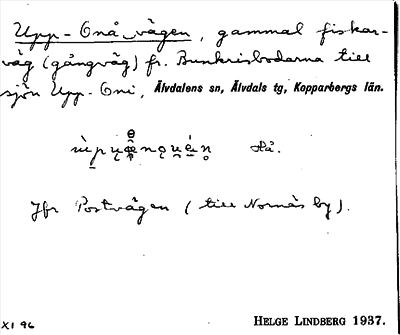 Upp-Onå-vägen, gammal fiskar-
väg (gångväg) fr. Bunkrisbodarna till
sjön Upp-Oni, Älvdalens sn, Älvdals tg, Kopparbergs län.
Hå.
Jfr Postvägen (till Nornäs by).
XI 96
HELGE LINDBERG 1937.